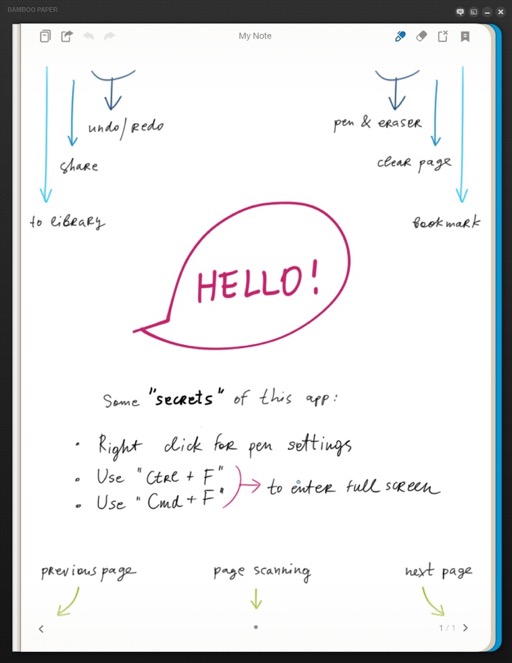 BAMBOO PAPER
My Note
undo/redo
pen & eraser
share
clear page
to library
bookmark
HELLO!
Some "secrets" of this app:
• Right click for pen settings
• Use "Ctrl + F"
• Use "Cmd + F"
to enter full screen
previous page
page scanning
next page
1 / 1